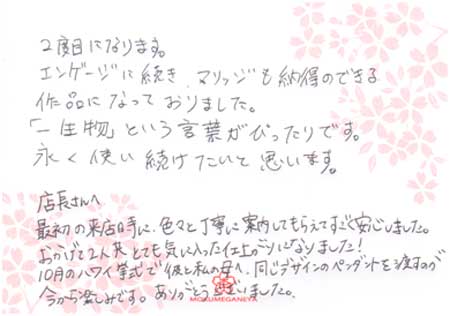 2度目になります。
エンゲージに続き、マリッジも納得のできる
作品になっておりました。
「一生物」という言葉がぴったりです。
永く使い続けたいと思います。
店長さんへ
最初の来店時に、色々と丁寧に案内してもらえてすごく安心しました。
おかげで2人共とても気に入った仕上がりになりました!
10月のハワイ挙式で彼と私の母へ、同じデザインのペンダントを渡すのが
今から楽しみです。ありがとうございました。
MOKUMEGANEYA